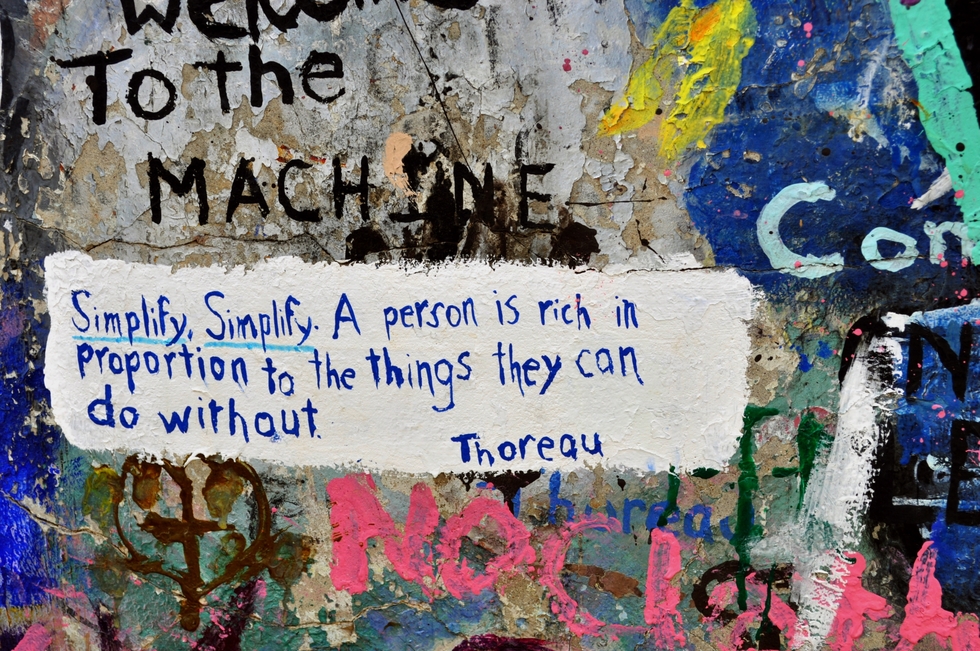 Welcome
To the
MACHINE
Con
Simplify, Simplify. A person is rich in
proportion to the things they can
do without.
Thoreau
Thoreau